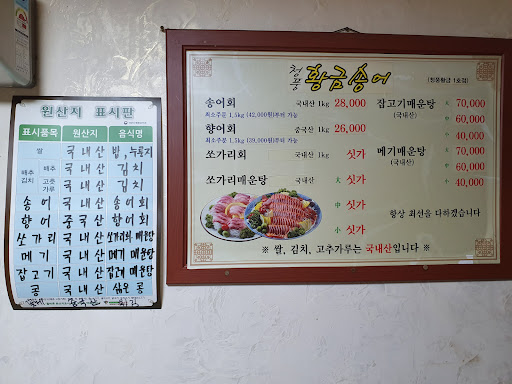 원산지 표시판
표시품목 원산지 음식명
쌀 국내산 밥, 누룽지
배추김치 배추 국내산 김치
고춧가루 국내산
송어 국내산 송어회
향어 중국산 향어회
쏘가리 국내산 쏘가리회 매운탕
메기 국내산 메기 매운탕
잡고기 국내산 잡고기 매운탕
콩 국내산 삶은 콩
중국산
청풍 황금송어
(청풍황금 1호점)
송어회 국내산 1kg 28,000
최소주문 1.5kg (42,000원)부터 가능
향어회 중국산 1kg 26,000
최소주문 1.5kg (39,000원)부터 가능
쏘가리회 국내산 1kg 싯가
쏘가리매운탕 국내산 大 싯가
中 싯가
小 싯가
잡고기매운탕 大 70,000
(국내산) 中 60,000
小 40,000
메기매운탕 大 70,000
(국내산) 中 60,000
小 40,000
항상 최선을 다하겠습니다
※ 쌀, 김치, 고추가루는 국내산입니다 ※